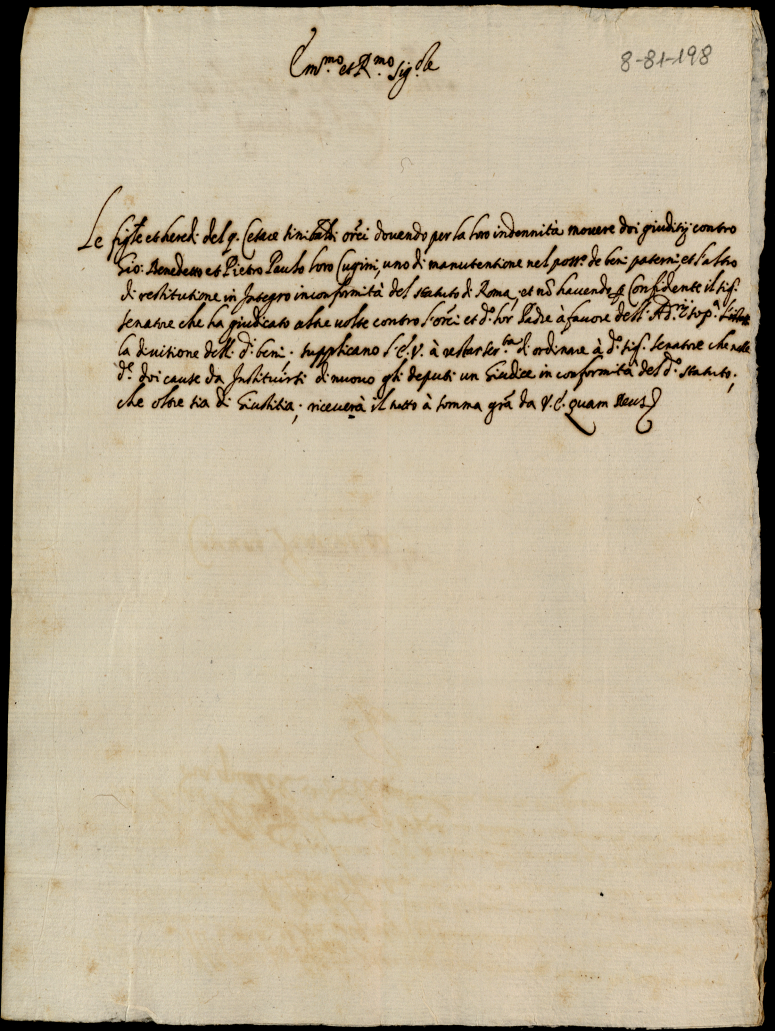 Em.mo et R.mo Sig.re
8-81-198
Le figle et heredi del q. Cesare Sinibaldi orci dovendo per la loro indennità movere doi giuditij contro
Gio: Benedetto et Pietro Paulo loro Cugini, uno di manutentione nel poss.o de beni paterni, et l'altro
di restitutione in Integro in conformità del statuto di Roma, et nõ havendo p Confidente il sig.r
senatore che ha giudicato altre volte contro l'orci et d.o lor Padre à favore dell'
la divitione delli d.i beni. supplicano l'E.V. à restar ser.ta di ordinare à d.o sig.r senatore che nelle
d.e doi cause da Instituirsi di nuovo gli deputi un Giudice in conformità del d.o statuto;
che oltre sia di Giustitia, riceverà il tutto à somma grã da V.E. quam Deus